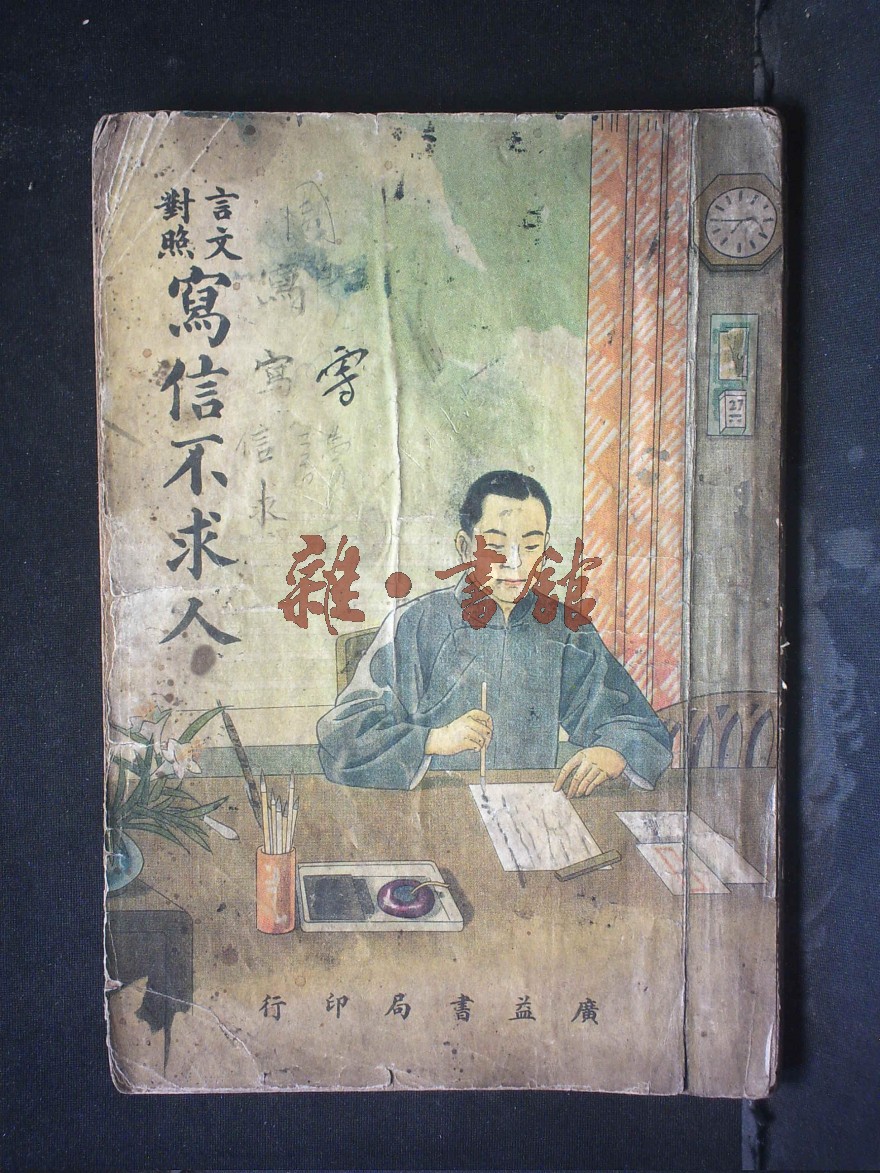 言文
對照
寫信不求人
寫
寫
信
求
雜·書館
27
廣益書局印行